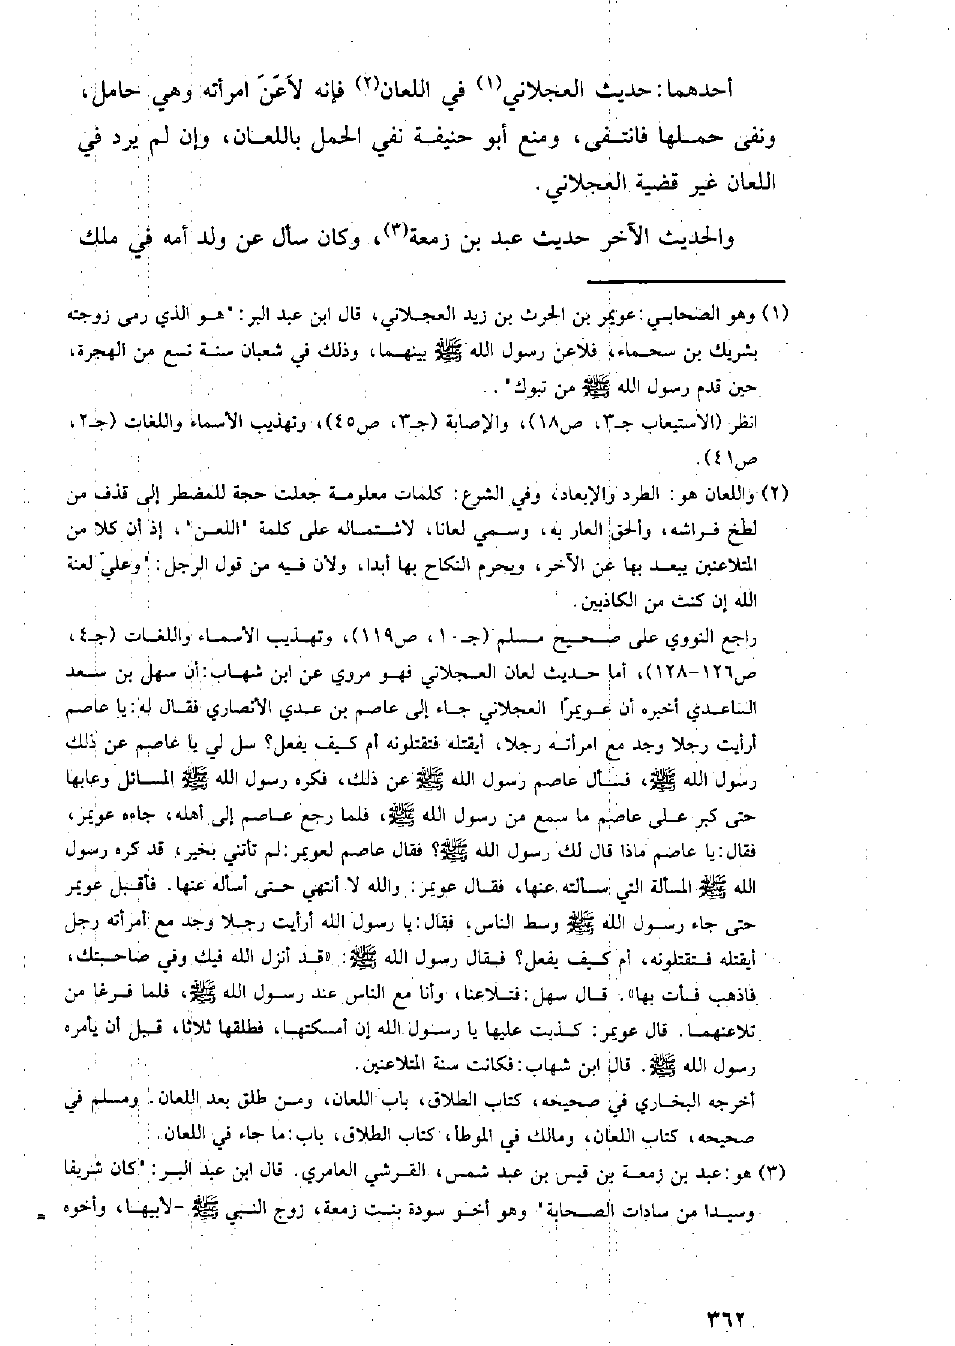 أحدهما: حديث العجلاني(١) في اللعان(٢) فإنه لاَعَنَّ امرأته وهي حامل،
ونفى حملها فانتفى، ومنع أبو حنيفة نفي الحمل باللعان، وإن لم يرد في
اللعان غير قضية العجلاني.
والحديث الآخر حديث عبد بن زمعة(٣)، وكان سأل عن ولد أمه في ملك
(١) وهو الصحابي: عويمر بن الحرث بن زيد العجلاني، قال ابن عبد البر: "هو الذي رمى زوجته
بشريك بن سحماء، فلاعن رسول الله ﷺ بينهما، وذلك في شعبان سنة تسع من الهجرة،
حين قدم رسول الله ﷺ من تبوك".
انظر (الاستيعاب جـ٣، ص١٨)، والإصابة (جـ٣، ص٤٥)، وتهذيب الأسماء واللغات (جـ٢،
ص٤١).
(٢) واللعان هو: الطرد والإبعاد، وفي الشرع: كلمات معلومة جعلت حجة للمضطر إلى قذف من
لطخ فراشه، وألحق العار به، وسمي لعانا، لاشتماله على كلمة "اللعن"، إذ أن كلا من
المتلاعنين يبعد بها عن الآخر، ويحرم النكاح بها أبدا، ولأن فيه من قول الرجل: "وعليّ لعنة
الله إن كنت من الكاذبين.
راجع النووي على صحيح مسلم (جـ١٠، ص١١٩)، وتهذيب الأسماء واللغات (جـ٤،
ص١٢٦-١٢٨)، أما حديث لعان العجلاني فهو مروي عن ابن شهاب: أن سهل بن سعد
الساعدي أخبره أن عويمرًا العجلاني جاء إلى عاصم بن عدي الأنصاري فقال له: يا عاصم
أرأيت رجلا وجد مع امرأته رجلا، أيقتله فتقتلونه أم كيف يفعل؟ سل لي يا عاصم عن ذلك
رسول الله ﷺ، فسأل عاصم رسول الله ﷺ عن ذلك، فكره رسول الله ﷺ المسائل وعابها
حتى كبر على عاصم ما سمع من رسول الله ﷺ، فلما رجع عاصم إلى أهله، جاءه عويمر،
فقال: يا عاصم ماذا قال لك رسول الله ﷺ؟ فقال عاصم لعويمر: لم تأتني بخير، قد كره رسول
الله ﷺ المسألة التي سألته عنها، فقال عويمر: والله لا أنتهي حتى أسأله عنها. فأقبل عويمر
حتى جاء رسول الله ﷺ وسط الناس، فقال: يا رسول الله أرأيت رجلا وجد مع أمرأته رجل
أيقتله فتقتلونه، أم كيف يفعل؟ فقال رسول الله ﷺ: «قد أنزل الله فيك وفي صاحبتك،
فاذهب فأت بها». قال سهل: فتلاعنا، وأنا مع الناس عند رسول الله ﷺ، فلما فرغا من
تلاعنهما. قال عويمر: كذبت عليها يا رسول الله إن أمسكتها، فطلقها ثلاثا، قبل أن يأمره
رسول الله ﷺ. قال ابن شهاب: فكانت سنة المتلاعنين.
أخرجه البخاري في صحيحه، كتاب الطلاق، باب اللعان، ومن طلق بعد اللعان. ومسلم في
صحيحه، كتاب اللعان، ومالك في الموطأ، كتاب الطلاق، باب: ما جاء في اللعان.
(٣) هو: عبد بن زمعة بن قيس بن عبد شمس، القرشي العامري. قال ابن عبد البر: "كان شريفا
وسيدا من سادات الصحابة" وهو أخو سودة بنت زمعة، زوج النبي ﷺ -لأبيها، وأخوه =
٣٦٢